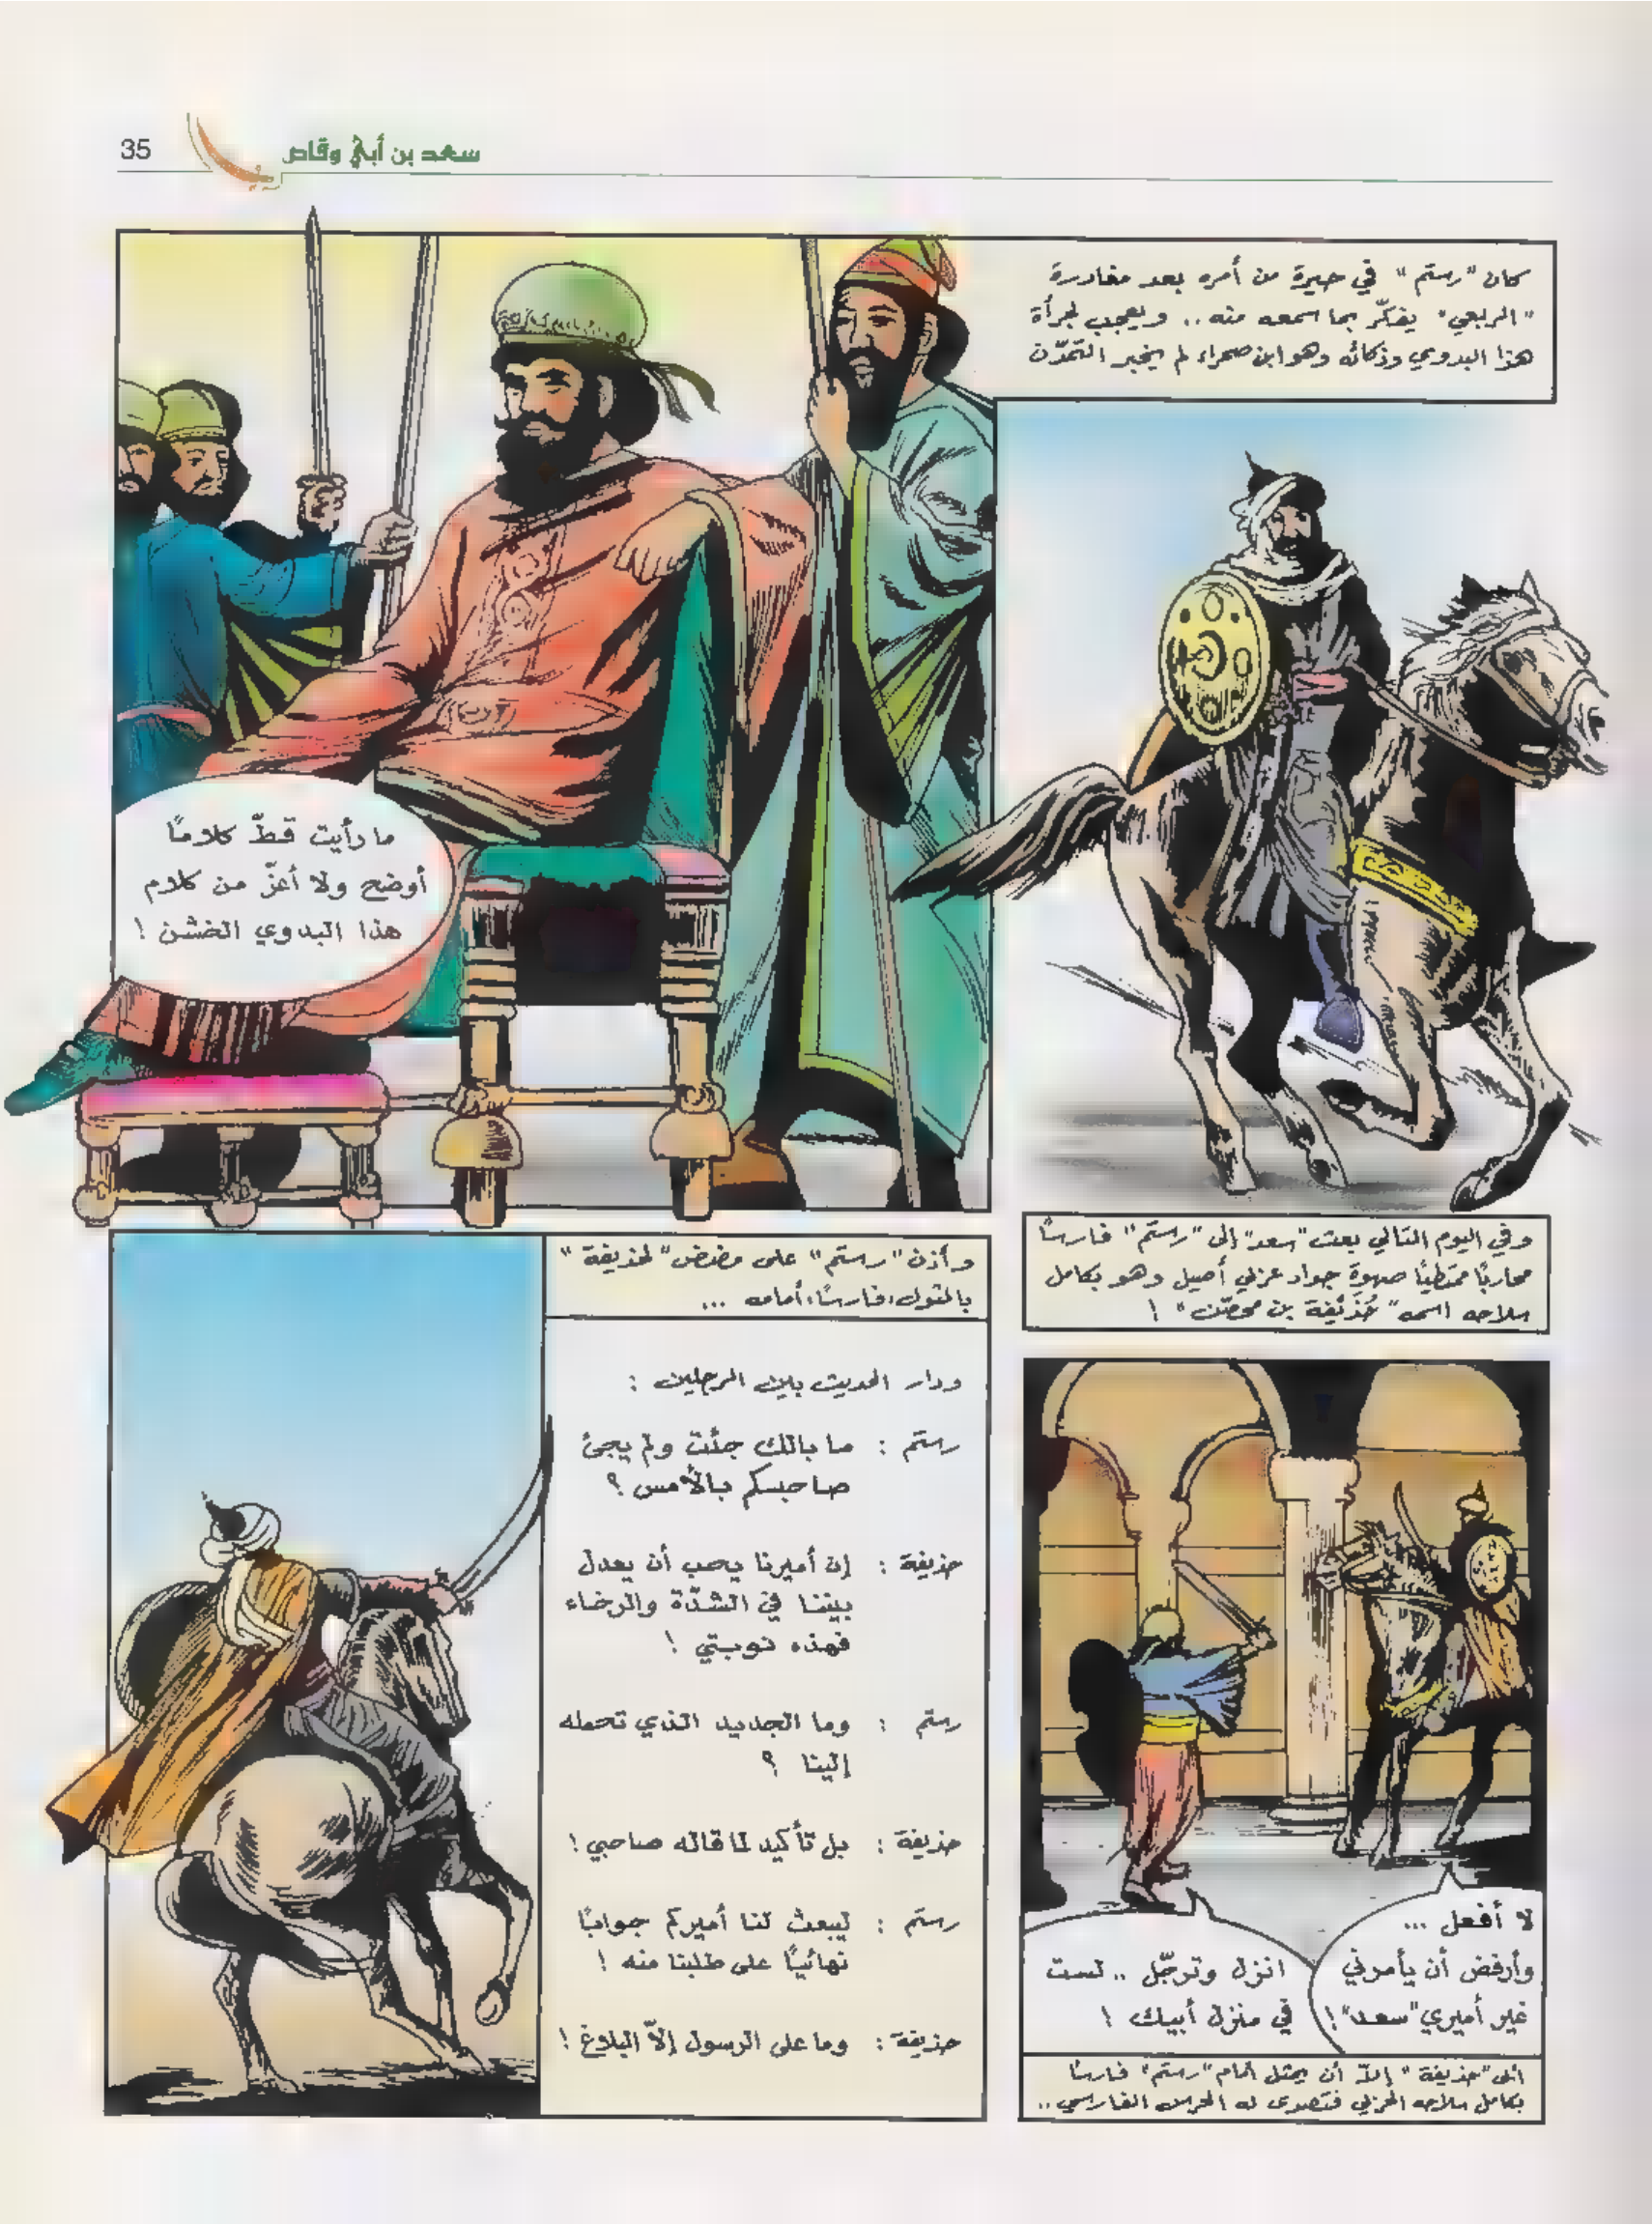 35
سعد بن أبي وقاص
كان "رستم" في حيرة من أمره بعد مغادرة
"الربعي" يفكّر بما سمعه منه .. ويعجب لجرأة
هذا البدوي وذكائه وهو ابن صحراء لم يخبر التمدّن
ما رأيت قطّ كلامًا
أوضح ولا أعزّ من كلام
هذا البدوي الخشن !
وفي اليوم التالي بعث "سعد" إلى "رستم" فارسًا
محاربًا ممتطيًا صهوة جواد عربي أصيل وهو بكامل
سلاحه اسمه "حُذيفة بن محصّن" !
لا أفعل ...
وأرفض أن يأمرني
غير أميري "سعد" !
انزل وترجّل .. لست
في منزل أبيك !
أبى "حذيفة" إلاّ أن يمثل أمام "رستم" فارسًا
بكامل سلاحه الحربي فتصدى له الحرس الفارسي ..
وأذن "رستم" على مضض "لحذيفة"
بالمثول، فارسًا، أمامه ...
ودار الحديث بين الرجلين :
رستم : ما بالك جئت ولم يجئ
صاحبكم بالأمس ؟
حذيفة : إن أميرنا يحب أن يعدل
بيننا في الشدّة والرخاء
فهذه نوبتي !
رستم : وما الجديد الذي تحمله
إلينا ؟
حذيفة : بل تأكيد لما قاله صاحبي !
رستم : ليبعث لنا أميركم جوابًا
نهائيًا على طلبنا منه !
حذيفة : وما على الرسول إلاّ البلاغ !